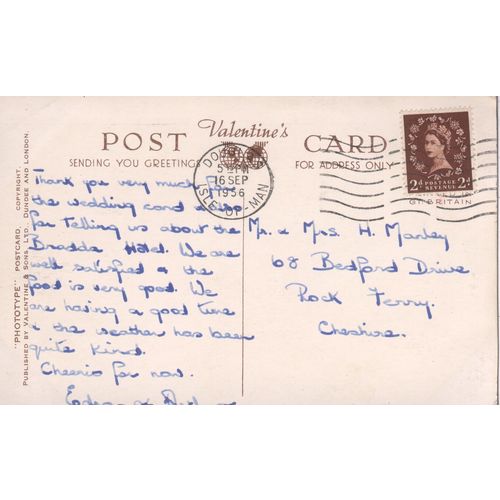 POST Valentine's CARD
SENDING YOU GREETINGS FOR ADDRESS ONLY
"PHOTOTYPE" POSTCARD, COPYRIGHT.
PUBLISHED BY VALENTINE & SONS, LTD., DUNDEE AND LONDON.
16 SEP
1956
ISLE-OF-MAN
2D POSTAGE REVENUE 2D
BRITAIN
Thank you very much for
the wedding card & also
for telling us about the
Bradda Hotel. We are
well satisfied & the
food is very good. We
are having a good time
& the weather has been
quite kind.
Cheerio for now.
Mr. & Mrs H. Manley
68 Bedford Drive
Rock Ferry.
Cheshire.